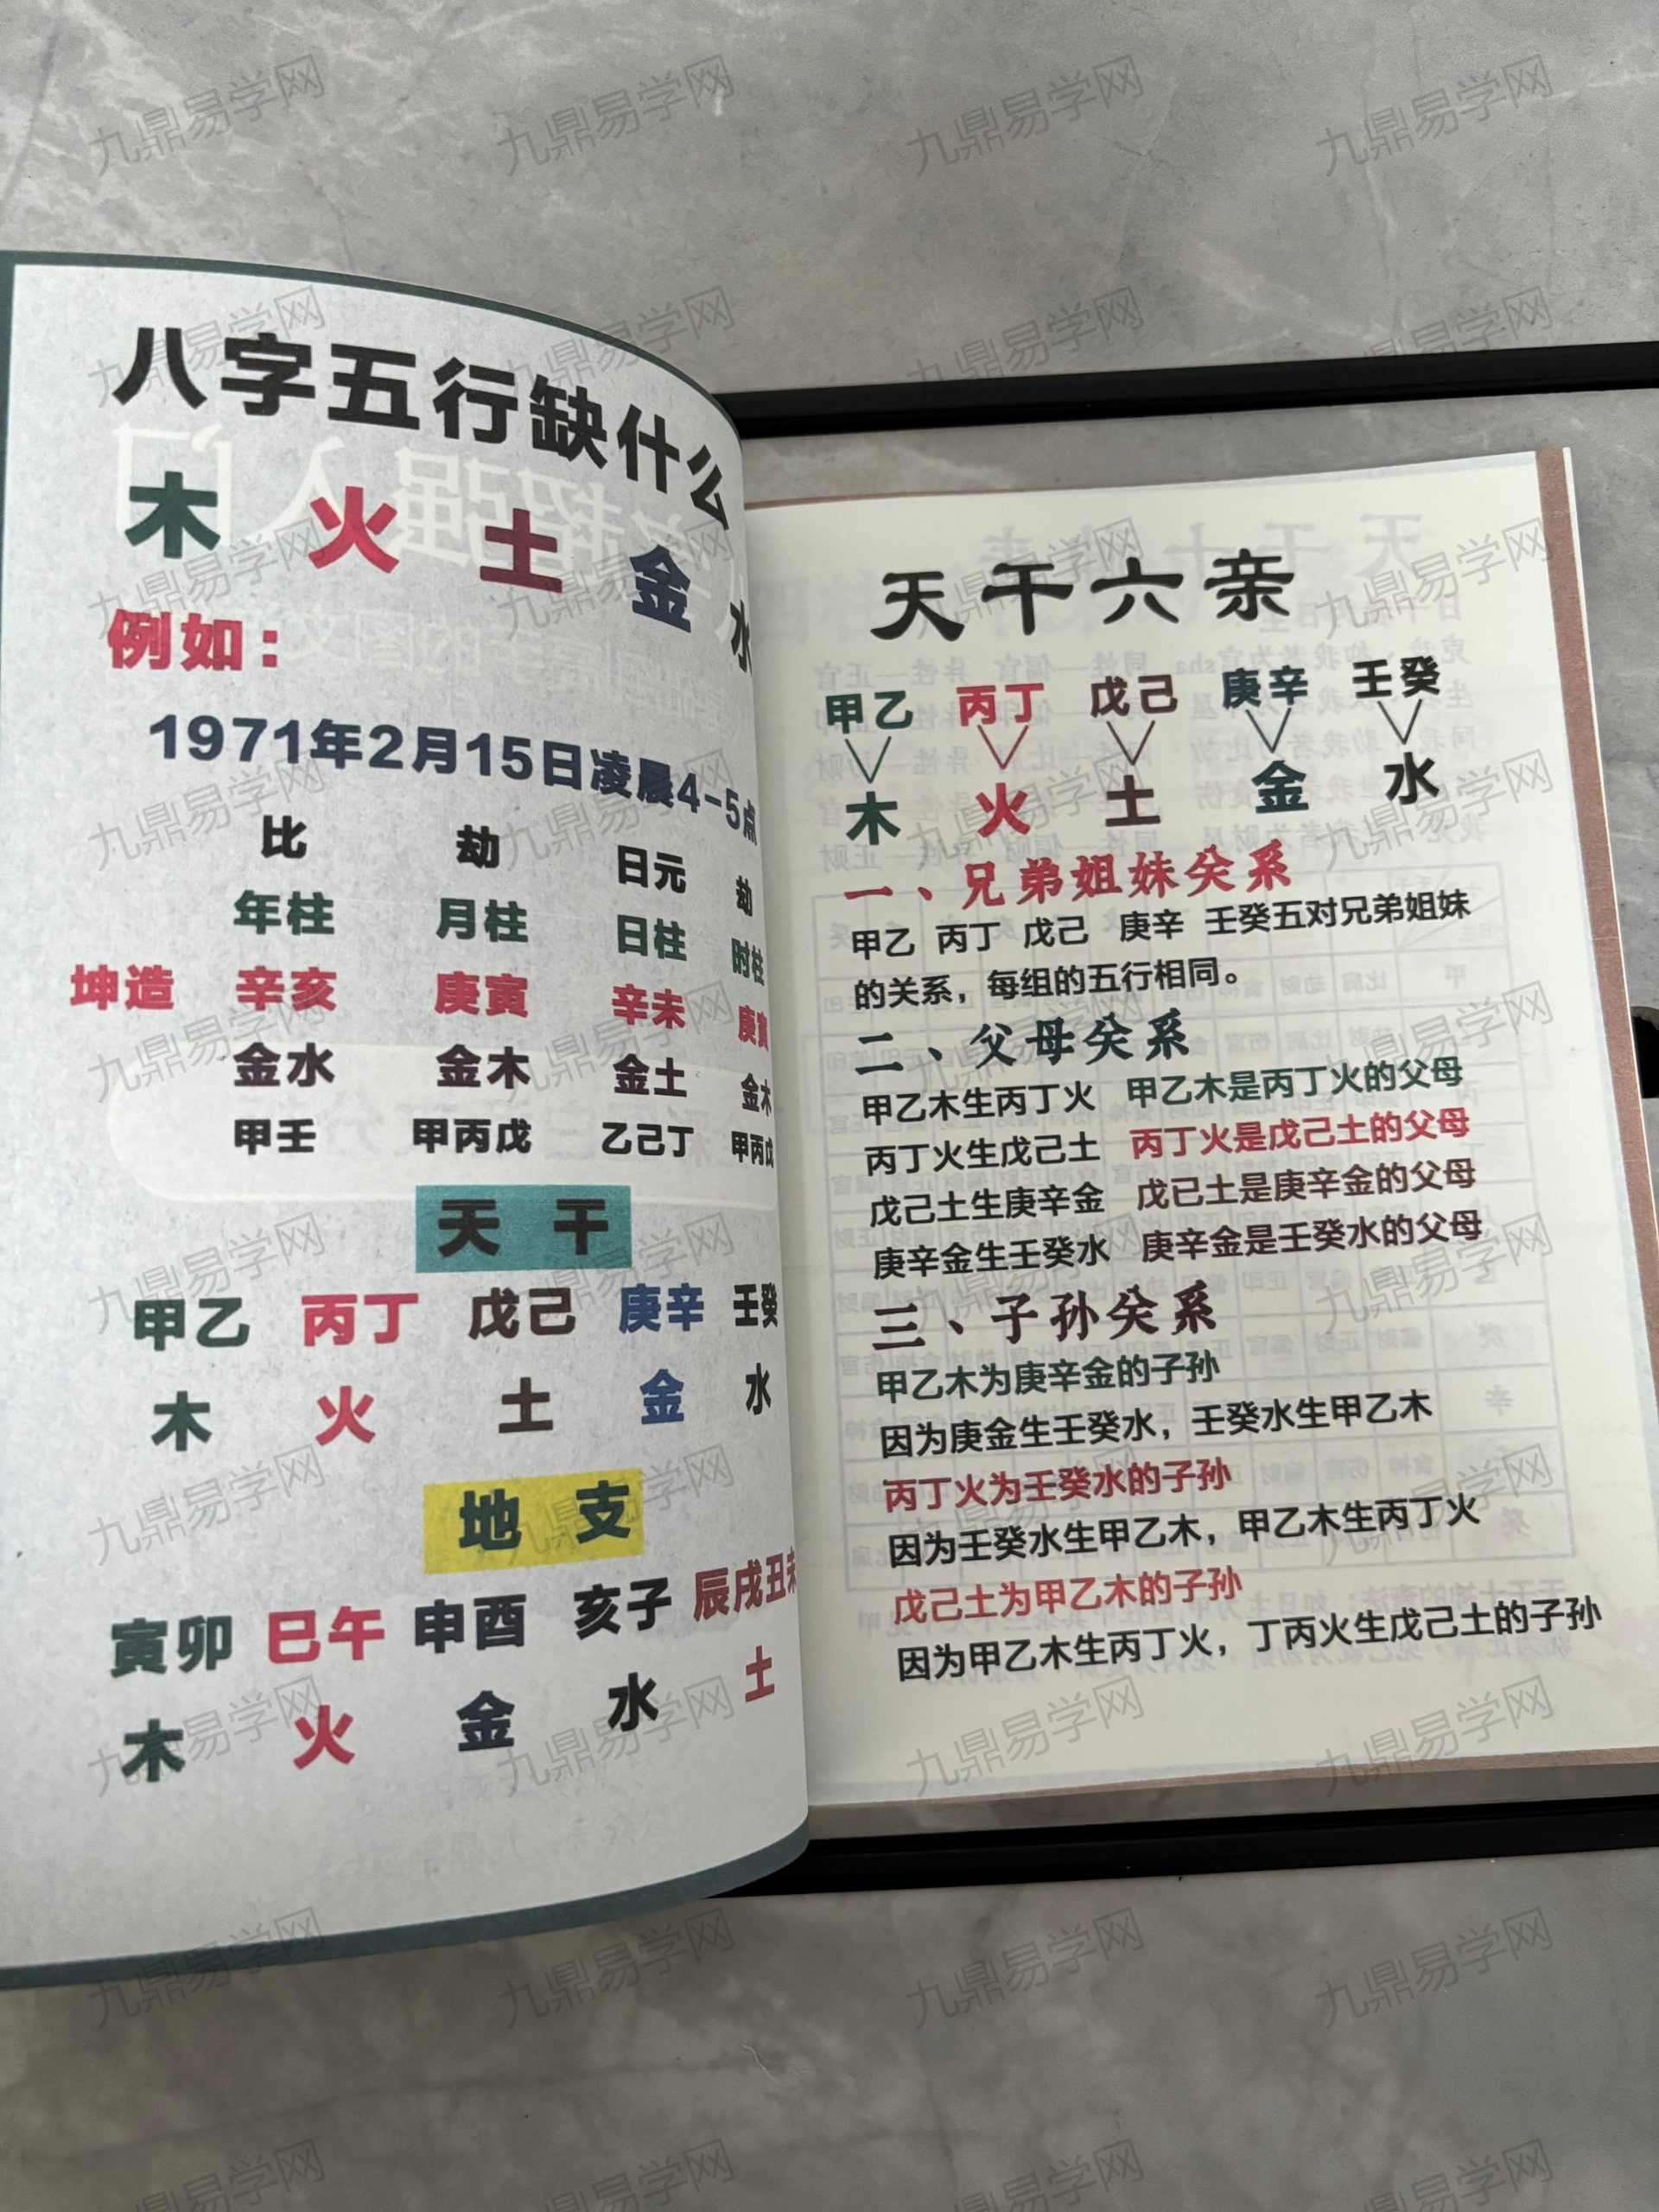 八字五行缺什么
木 火 土 金 水
例如：
1971年2月15日凌晨4-5点
比 劫 日元 劫
年柱 月柱 日柱 时柱
坤造 辛亥 庚寅 辛未 庚寅
金水 金木 金土 金木
甲壬 甲丙戊 乙己丁 甲丙戊
天 干
甲乙 丙丁 戊己 庚辛 壬癸
木 火 土 金 水
地 支
寅卯 巳午 申酉 亥子 辰戌丑未
木 火 金 水 土
天干六亲
甲乙 丙丁 戊己 庚辛 壬癸
木 火 土 金 水
一、兄弟姐妹关系
甲乙 丙丁 戊己 庚辛 壬癸五对兄弟姐妹
的关系，每组的五行相同。
二、父母关系
甲乙木生丙丁火 甲乙木是丙丁火的父母
丙丁火生戊己土 丙丁火是戊己土的父母
戊己土生庚辛金 戊已土是庚辛金的父母
庚辛金生壬癸水 庚辛金是壬癸水的父母
三、子孙关系
甲乙木为庚辛金的子孙
因为庚金生壬癸水，壬癸水生甲乙木
丙丁火为壬癸水的子孙
因为壬癸水生甲乙木，甲乙木生丙丁火
戊己土为甲乙木的子孙
因为甲乙木生丙丁火，丁丙火生戊己土的子孙
九鼎易学网